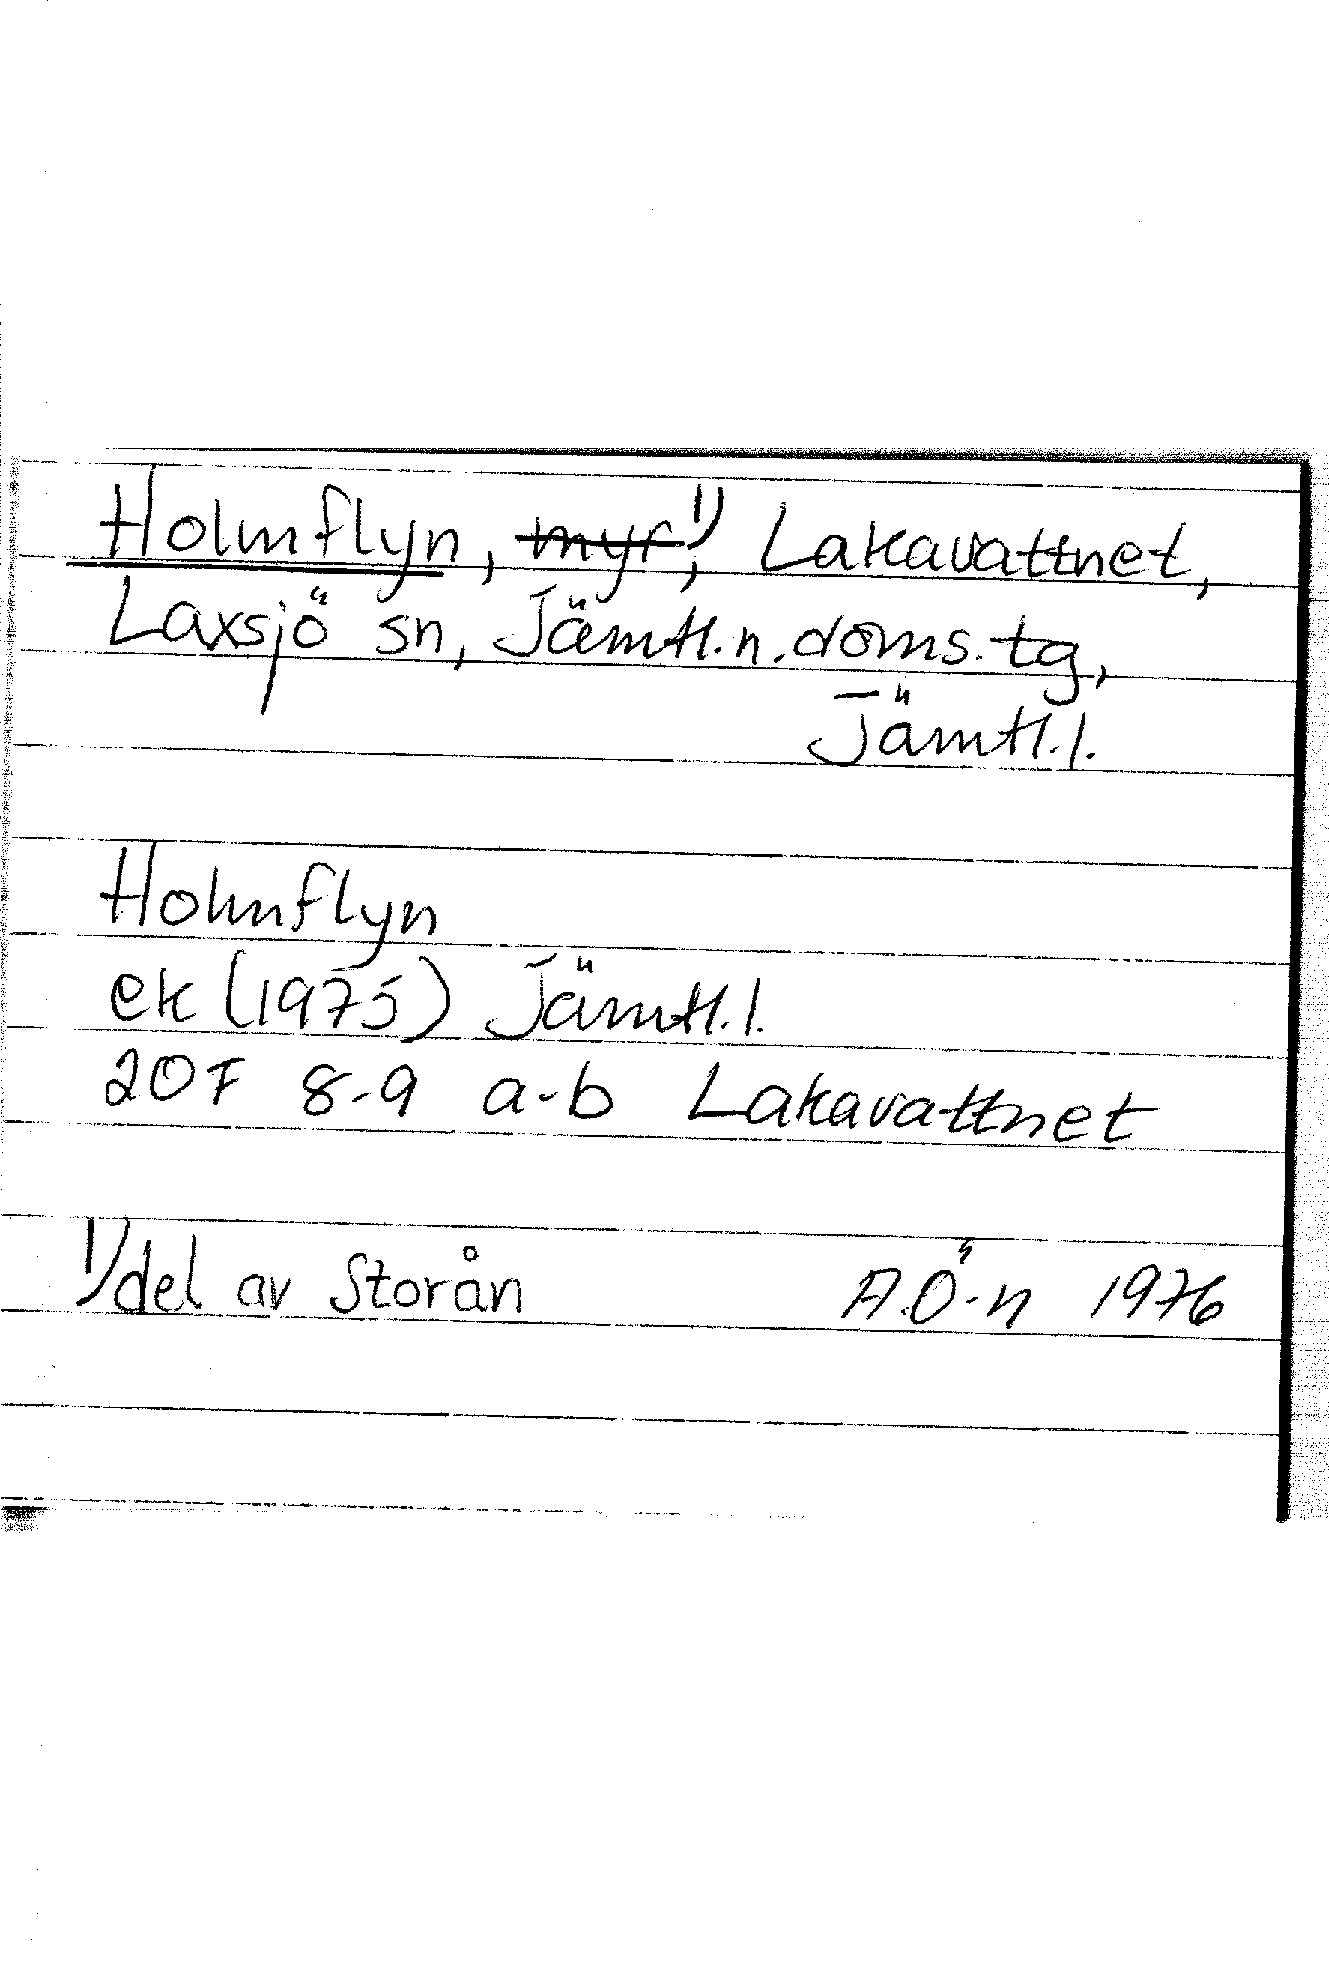 Holmflyn, myr¹⁾, Lakavattnet,
Laxsjö sn, Jämtl. n. doms. tg,
Jämtl. l.
Holmflyn
ek (1975) Jämtl. l.
20F 8-9 a-b Lakavattnet
¹⁾del av Storån A.Ö-n 1976